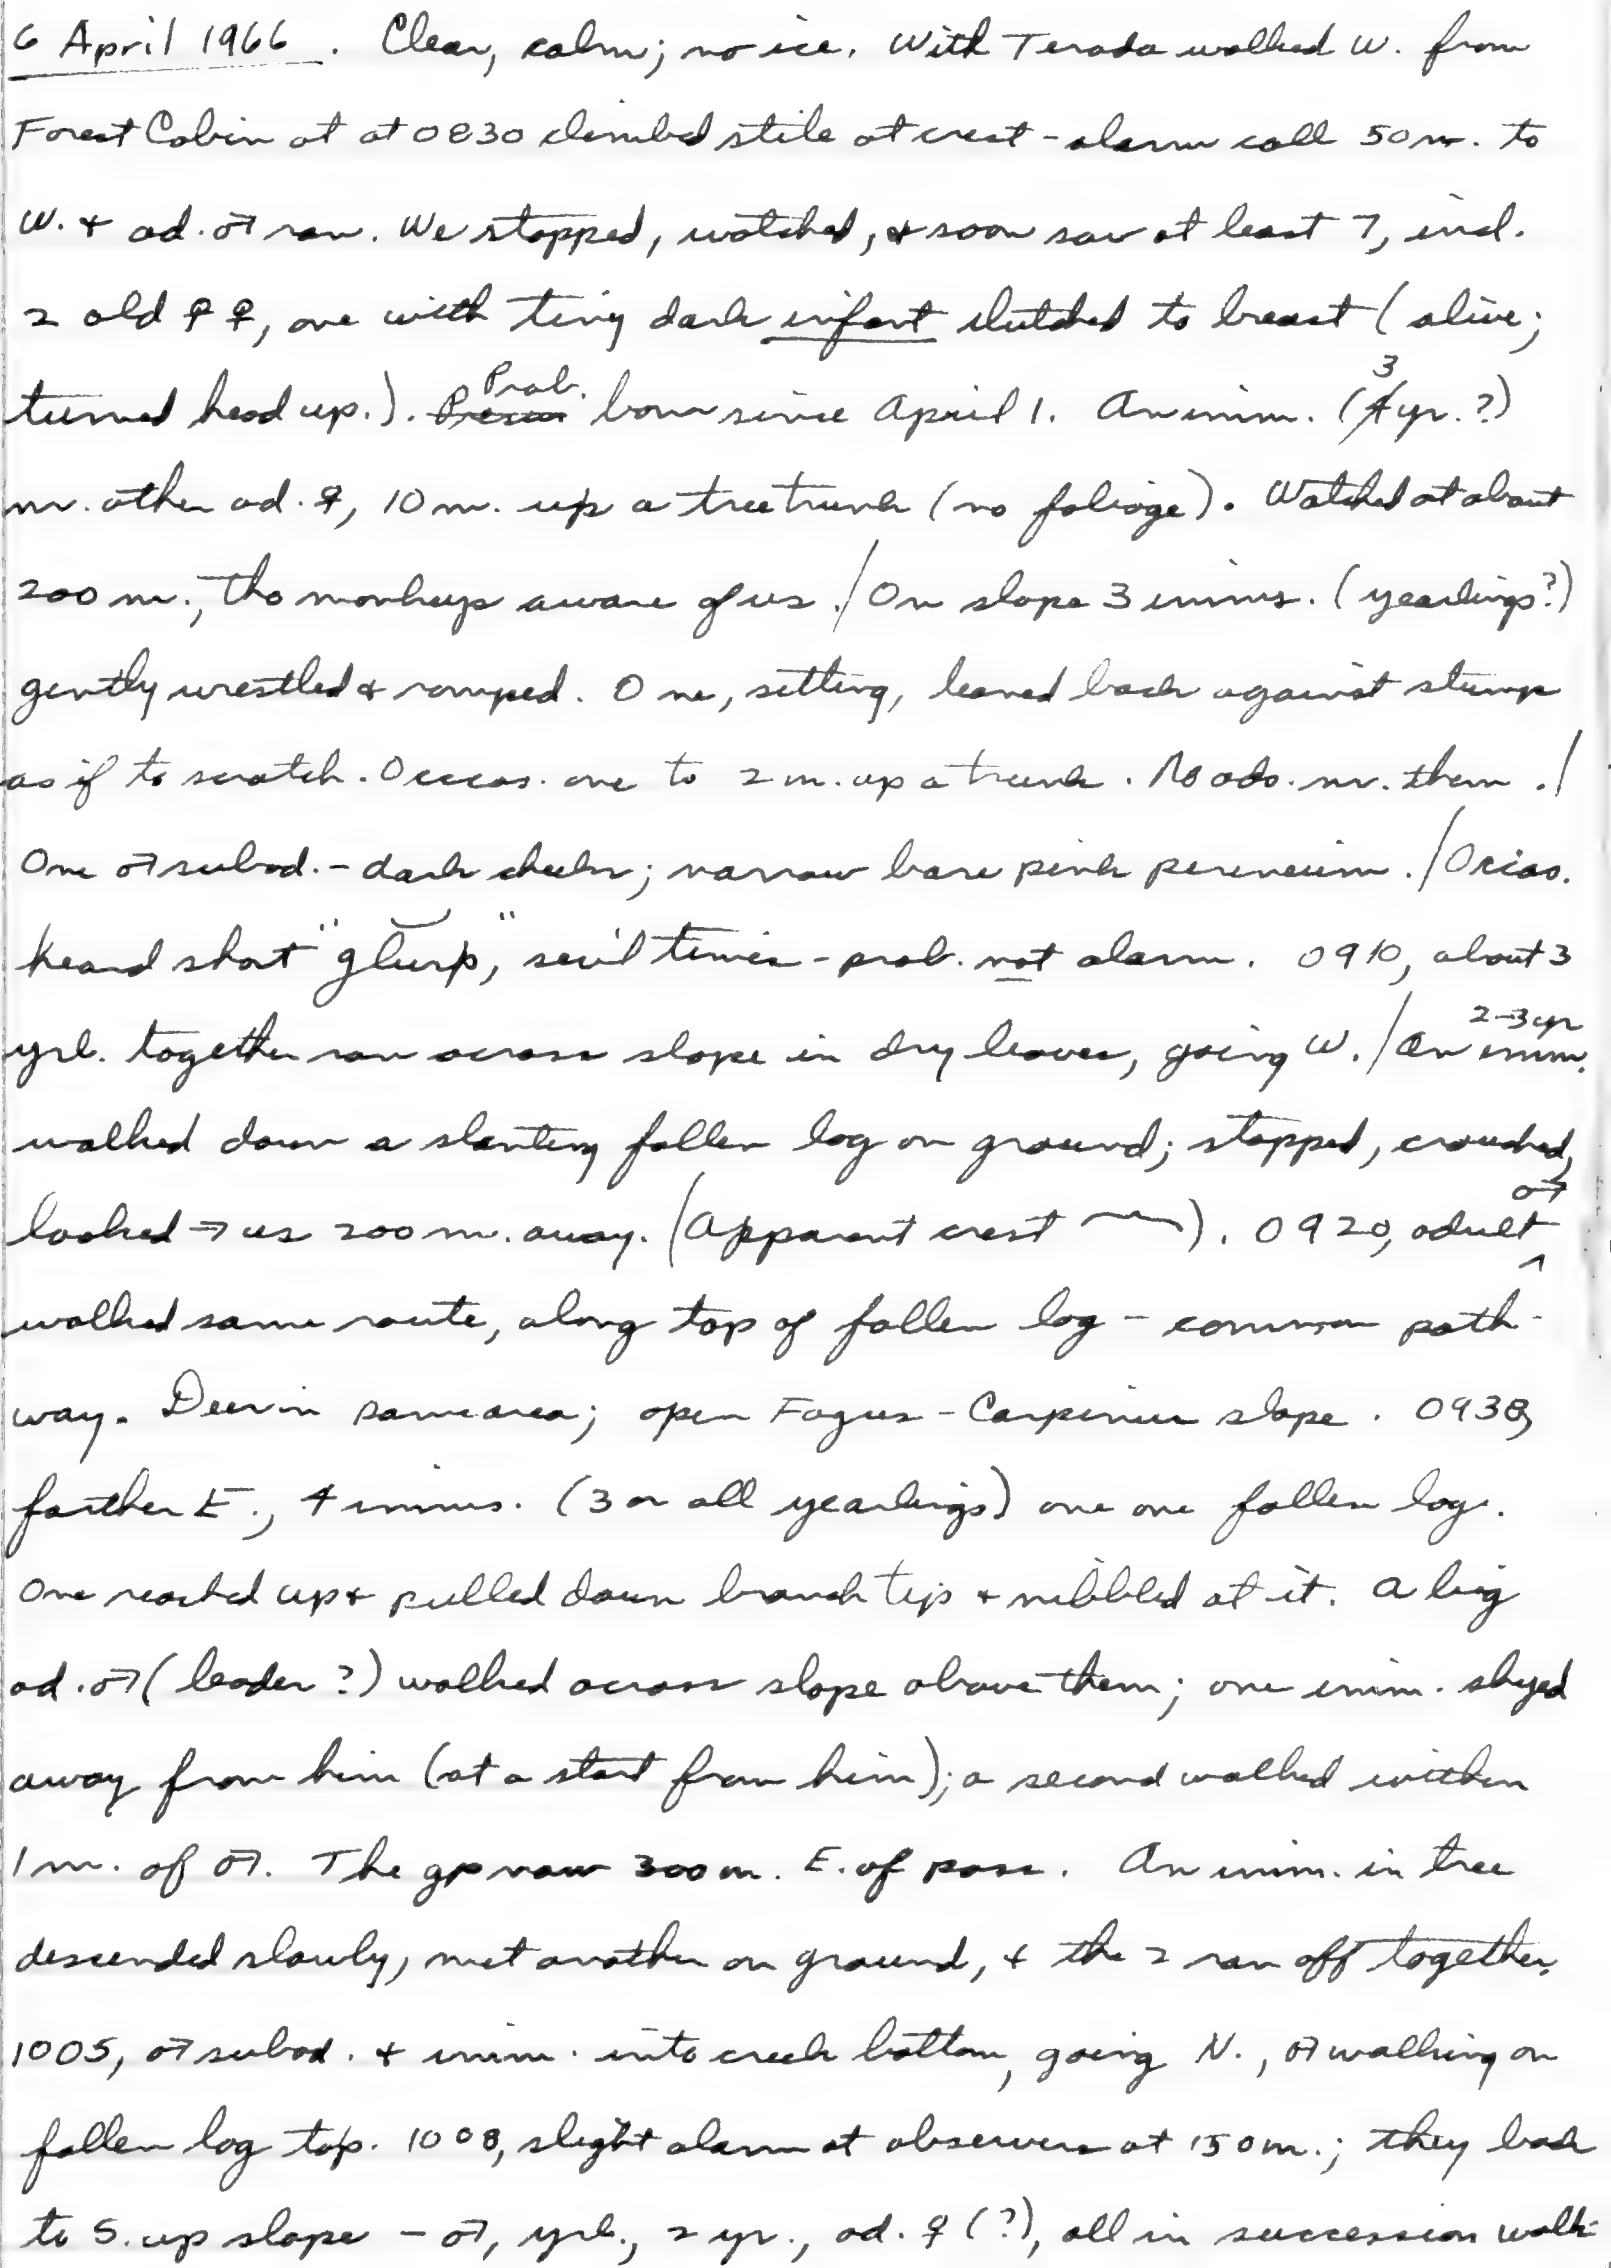 6 April 1966. Clear, calm; no ice. With Terada walked W. from
Forest Cabin at at 0830 climbed stile at crest - alarm call 50 m. to
W. & ad. ♂ ran. We stopped, watched, & soon saw at least 7, incl.
2 old ♀♀, one with tiny dark infant clutched to breast (alive;
turned head up.). Prob. born since April 1. An imm. (3 yr.?)
nr. other ad. ♀, 10 m. up a tree trunk (no foliage). Watched at about
200 m.; tho monkeys aware of us./On slope 3 imms. (yearlings?)
gently wrestled & romped. One, sitting, leaned back against stump
as if to scratch. Occas. one to 2 m. up a trunk. No ads. nr. them./
One ♂ subad. - dark cheeks; narrow bare pink perineum./Occas.
heard short "glurp," sev'l times - prob. not alarm. 0910, about 3
yrl. together ran across slope in dry leaves, going W./An 2-3 yr imm.
walked down a slanting fallen log on ground; stopped, crouched,
looked → us 200 m. away. (Apparent crest ). 0920, adult ♂
walked same route, along top of fallen log - common path-
way. Deer in same area; open Fagus-Carpinus slope. 0938,
farther E., 4 imms. (3 or all yearlings) one one fallen log.
One reached up & pulled down branch tip & nibbled at it. A big
ad. ♂ (leader?) walked across slope above them; one imm. shyed
away from him (at a start from him); a second walked within
1 m. of ♂. The gp now 300 m. E. of pass. An imm. in tree
descended slowly, met another on ground, & the 2 ran off together.
1005, ♂ subad. & imm. into creek bottom, going N., ♂ walking on
fallen log top. 1008, slight alarm at observers at 150 m.; they back
to S. up slope - ♂, yrl., 2 yr., ad. ♀ (?), all in succession walk-